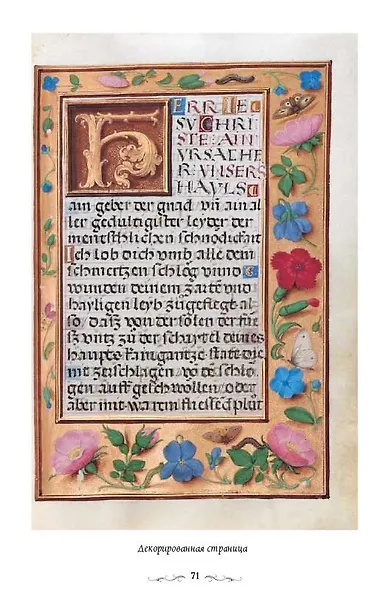 HERR IE
SV CHRI
STE AIN
VRSACHE
R VNSERS
HAYLS
ain geber der gnad vn̄ ain al
ler gedultigister leyder der
menschlichen schnödickait
Ich lob dich vmb alle dein
schmertzen schleg vnnd
wunden deinem zarte vnd
hayligen leyb zůgefiegt al
so, dasz von der solen der fůe
sz vntz zů der schaytel deines
haupts kain gantze state die
nit zerschlagen võ de schle
gen auff geschwollen, oder
aber mit warem fliessed plůt
Декорированная страница
71